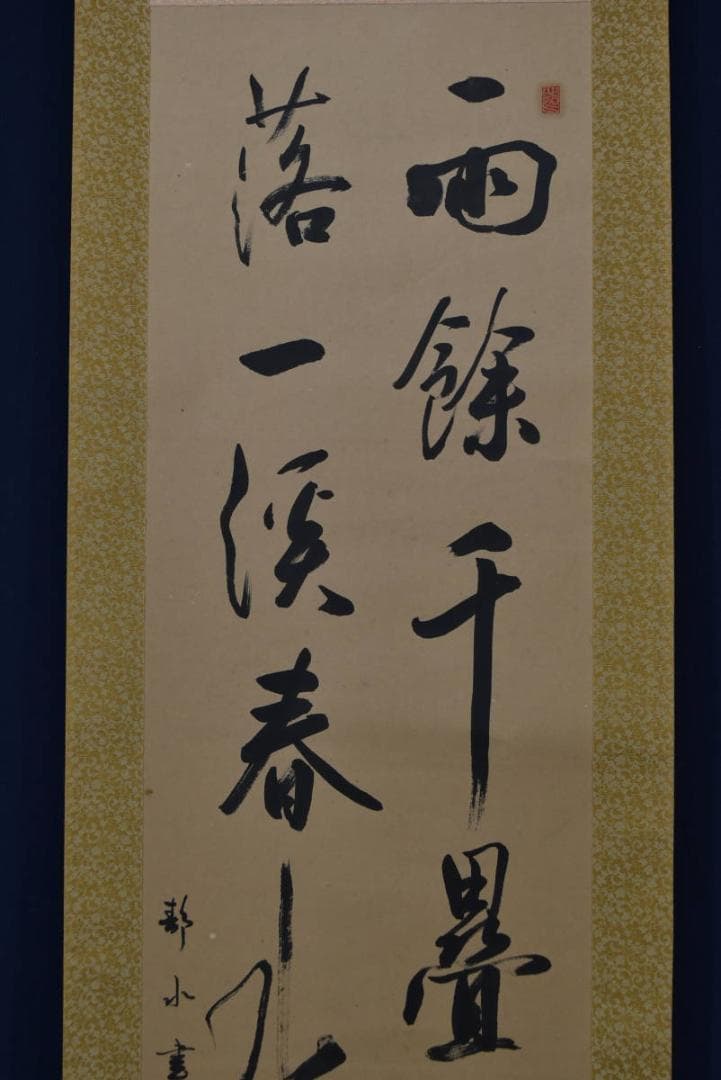 雨餘千疊
落一溪春水
水書